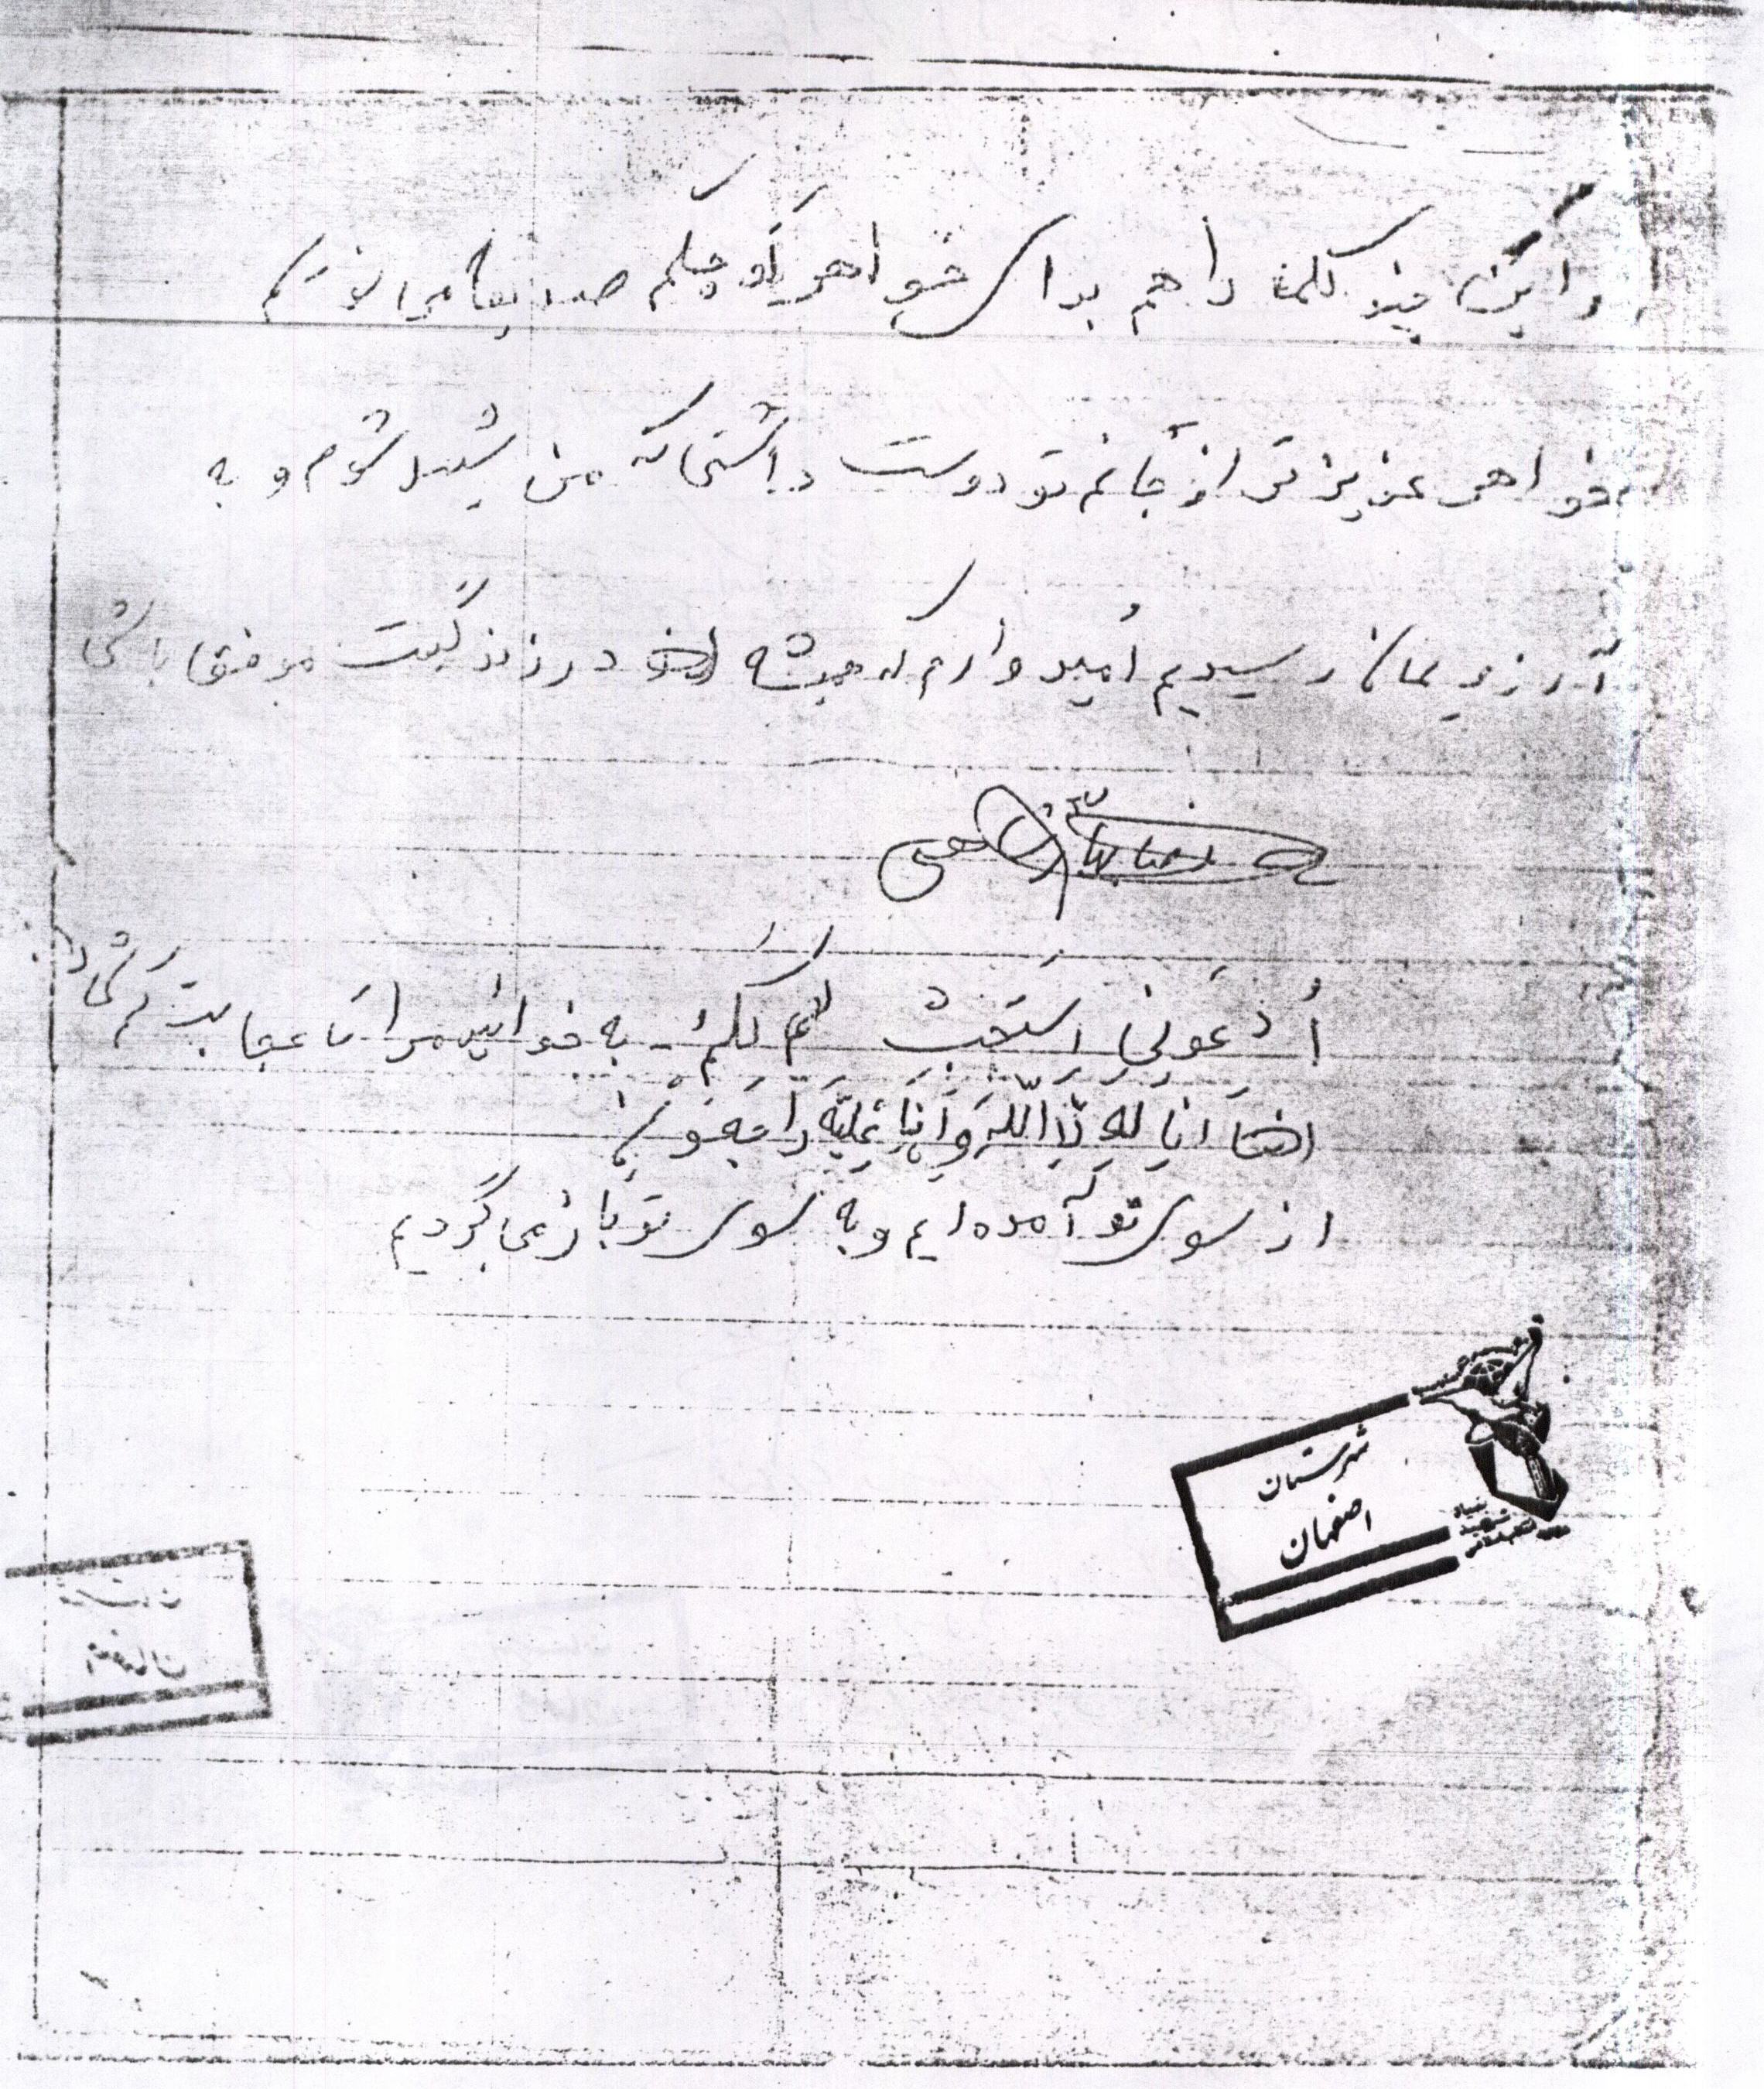 و این چند کلمه را هم برای خواهر کوچکم صدیقه می نویسم
خواهر عزیز تر از جانم تو دوست داشتی که من شهید شوم و به
آرزویمان رسیدیم اُمید وارم که همیشه در زندگیت موفق باشی
اُدعونی استَجِب لکُم - به خوانید مرا تا عجابت کنم شما را
انا لله وَ اِنا علیه راجعون
از سوی تو آمده ایم و به سوی تو باز می گردیم
شهرستان
اصفهان
بنیاد
شهید
انقلاب اسلامی